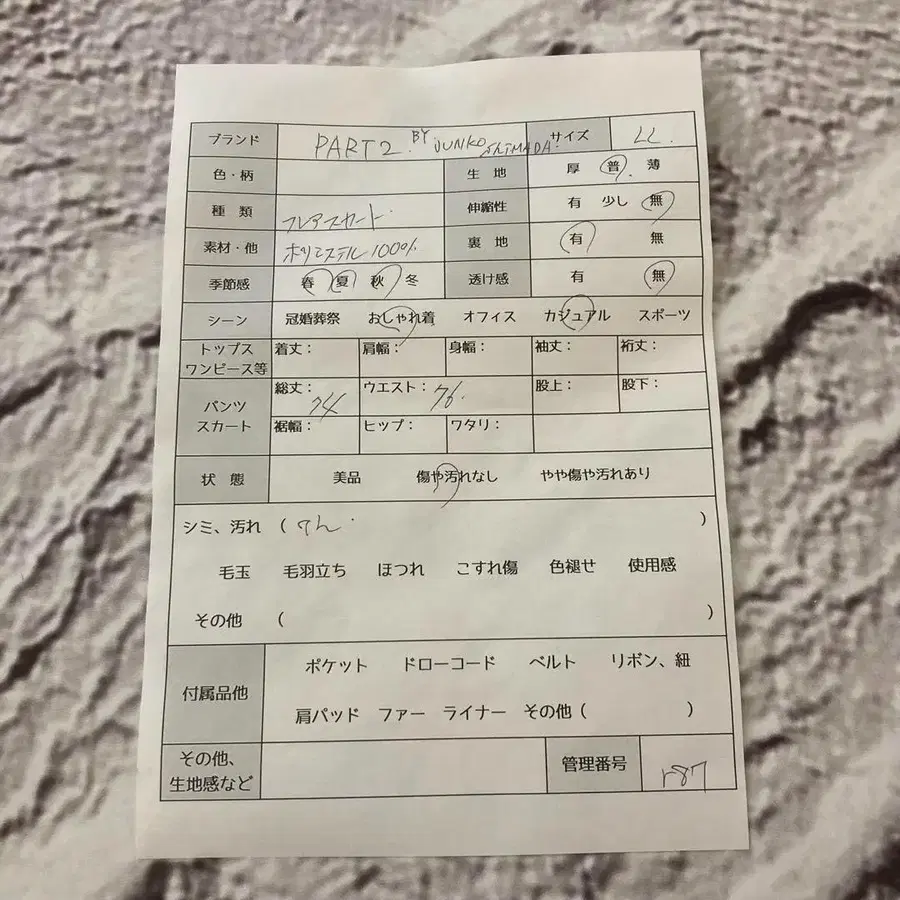 ブランド PART2 BY JUNKO SHIMADA. サイズ LL.
色・柄 生地 厚 普 薄
種類 フレアスカート 伸縮性 有 少し 無
素材・他 ポリエステル100% 裏地 有 無
季節感 春 夏 秋 冬 透け感 有 無
シーン 冠婚葬祭 おしゃれ着 オフィス カジュアル スポーツ
トップス ワンピース等 着丈: 肩幅: 身幅: 袖丈: 裄丈:
パンツ スカート 総丈: 74 ウエスト: 76. 股上: 股下:
裾幅: ヒップ: ワタリ:
状態 美品 傷や汚れなし やや傷や汚れあり
シミ、汚れ ( )
毛玉 毛羽立ち ほつれ こすれ傷 色褪せ 使用感
その他 ( )
付属品他 ポケット ドローコード ベルト リボン、紐
肩パッド ファー ライナー その他 ( )
その他、 管理番号 r87
生地感など